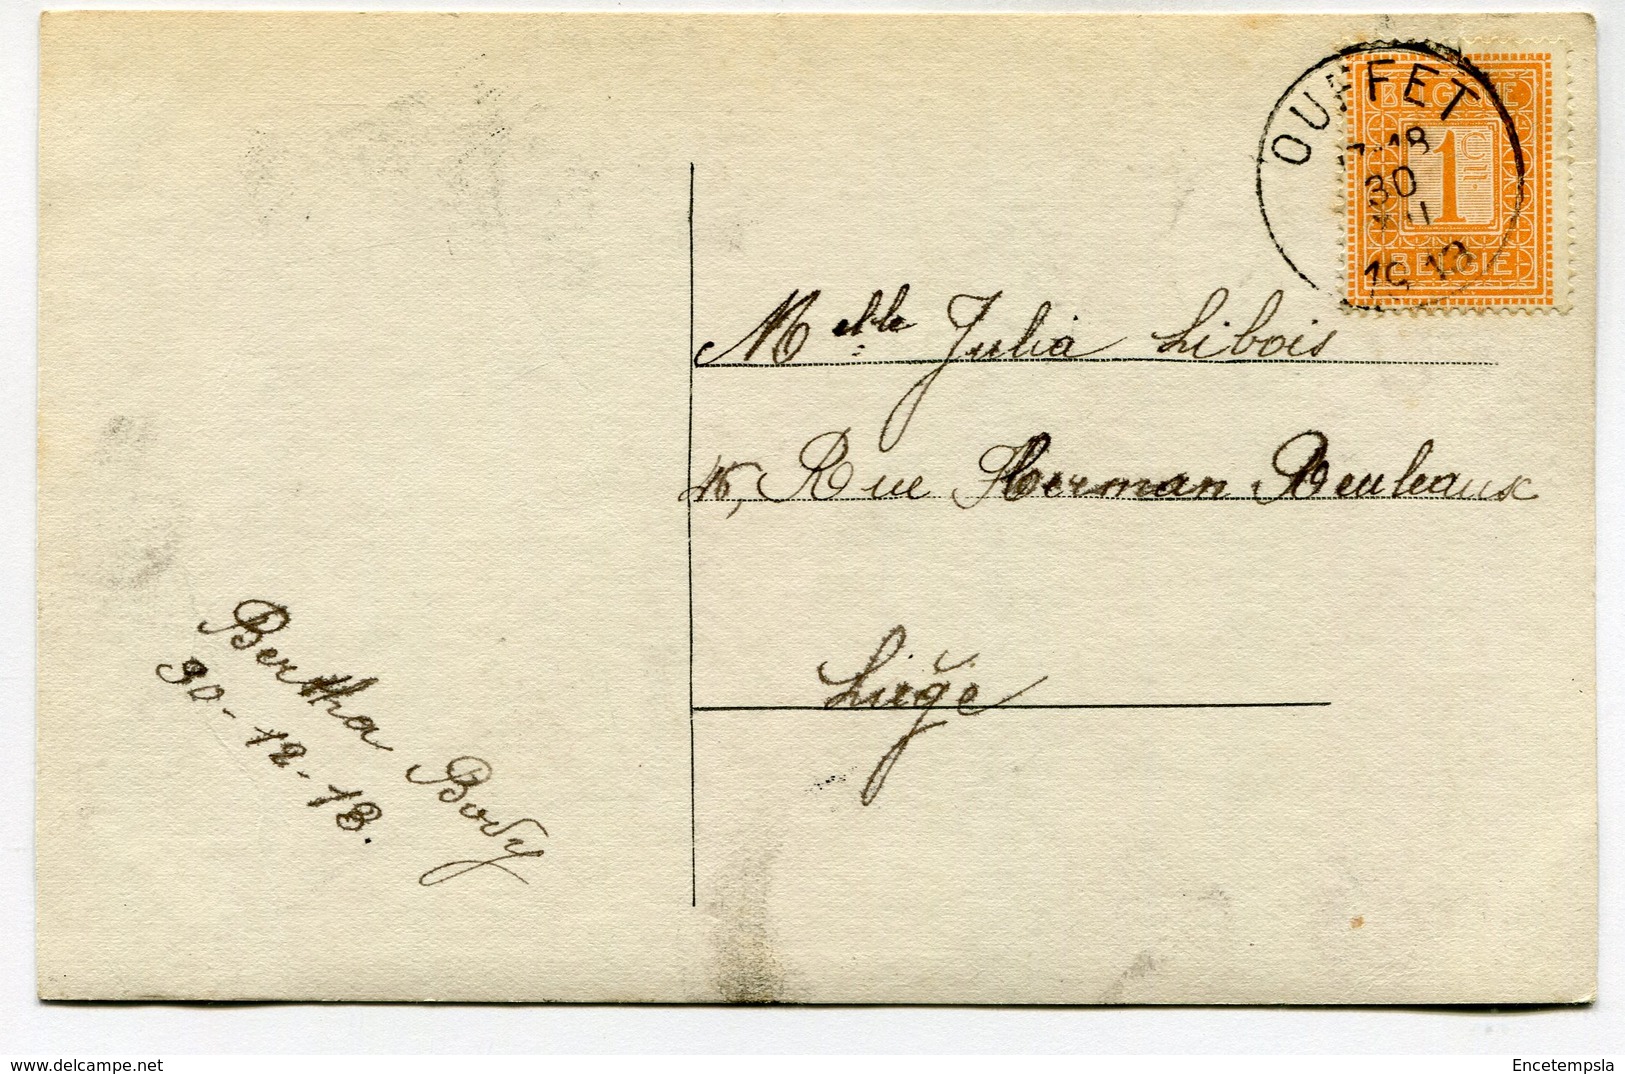 OUFFET
30
XII
1913
BELGIQUE
1 C.
BELGIË
Melle Julia Libois
15, Rue Herman Reuleaux
Liége
Bertha Body
30-12-13.
Encetempsla